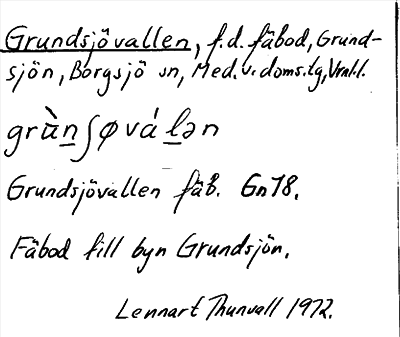 Grundsjövallen, f.d. fäbod, Grund-
sjön, Borgsjö sn, Med. v. doms.tg, Vrnl.l.
grùn̲ʃøvál̲ən
Grundsjövallen fäb. Gn78.
Fäbod till byn Grundsjön.
Lennart Thunvall 1972.